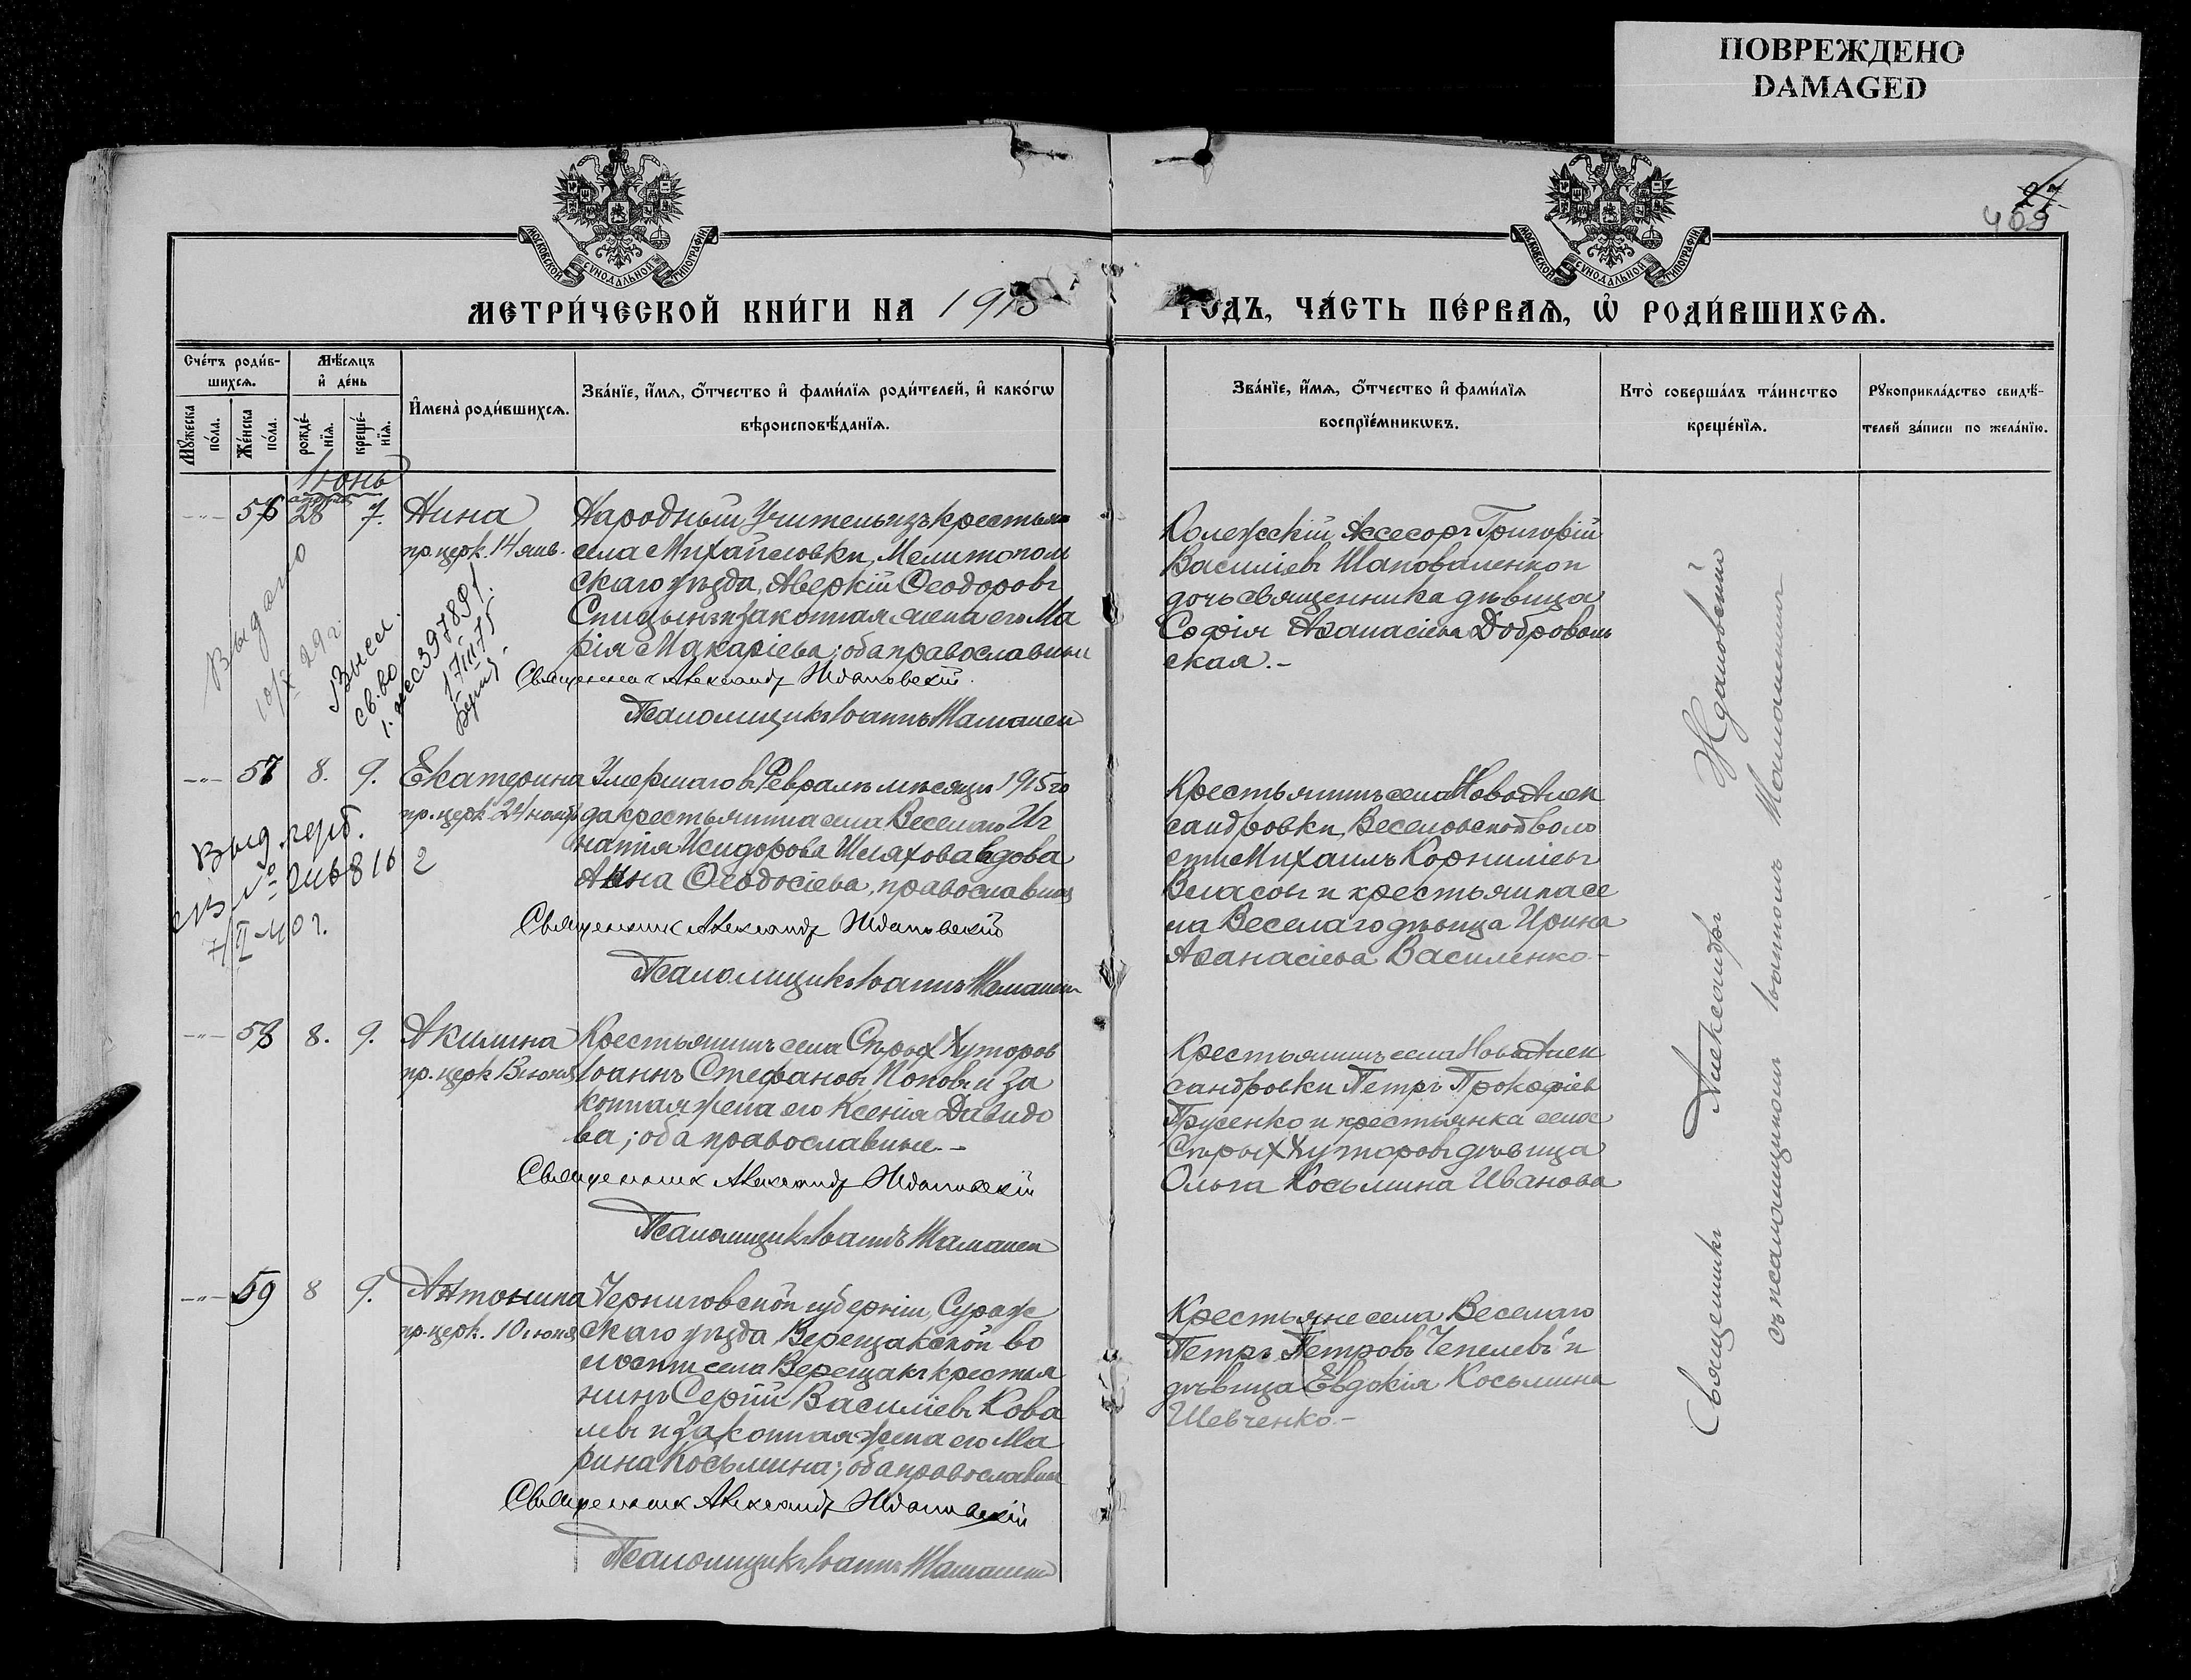 ПОВРЕЖДЕНО
DAMAGED
27
409
МОСКОВСКОЙ СѴНОДАЛЬНОЙ ТИПОГРАФІИ
МОСКОВСКОЙ СѴНОДАЛЬНОЙ ТИПОГРАФІИ
МЕТРИ́ЧЕСКОЙ КНИ́ГИ НА 1915
ГОДЪ, ЧА́СТЬ ПЕ́РВАѦ, Ѡ҆ РОДИ́ВШИХСѦ.
Сче́тъ роди́в-
шихсѧ.
Мꙋ́жеска по́ла.
Же́нска по́ла.
Мѣ́сѧцъ
и҆ де́нь
рожде́-
нїѧ.
креще́-
нїѧ.
И҆мена̀ роди́вшихсѧ.
Зва́нїе, и҆́мѧ, ѻ҆́тчество и҆ фами́лїѧ роди́телей, и҆ како́гѡ
вѣроисповѣ́данїѧ.
Зва́нїе, и҆́мѧ, ѻ҆́тчество и҆ фами́лїѧ
воспрїе́мникѡвъ.
Кто̀ соверша́лъ та́инство
креще́нїѧ.
Рꙋкоприкла́дство свидѣ́-
телей за́писи по жела́нїю.
Іюнь
56 28 7. Нина
пр. церк. 14 янв.
Народный Учитель изъ крестьян
села Михайловки, Мелитополь
скаго уѣзда, Аверкій Ѳеодоровъ
и законная жена его Ма
рія Макаріева; оба православные
Священникъ Александръ Ждановскій.
Псаломщикъ Іоаннъ
Колежскій Ассесоръ Григорій
Василіевъ Шаповаленко и
дочь священника дѣвица
Софія Аѳанасіева Доброволь
ская.-
Выдано
10/X 29 г.
св.во
397891
17 III 75
57 8. 9. Екатерина
пр. церк. 24 нояб
Умершаго в Февралѣ мѣсяцѣ 1915 го
да крестьянина села Веселаго Иг
натія Исидорова Шляхова вдова
Анна Ѳеодосіева, православная
Священникъ Александръ Ждановскій
Псаломщикъ Іоаннъ
Крестьянинъ села Ново Алек
сандровки, Веселовской воло
сти Михаилъ Корниліевъ
Власовъ и крестьянка се
ла Веселаго дѣвица Ирина
Аѳанасіева Василенко.-
Выд.
№
7/II-40 г.
58 8. 9. Акилина
пр. церк 13 іюня
Крестьянинъ села Сѣрыхъ Хуторовъ
Іоаннъ Стефановъ Поповъ и за
конная жена его Ксенія Давидо
ва; оба православные.-
Священникъ Александръ Ждановскій
Псаломщикъ Іоаннъ
Крестьянинъ села Ново Алек
сандровки Петръ Прокофіев
и крестьянка села
Сѣрыхъ Хуторовъ дѣвица
Ольга Косьмина Иванова
59 8 9. Антонина
пр. церк. 10 іюня
Черниговской губерніи, Сураж
скаго уѣзда Верещакской во
лости села Верещакъ крестья
нинъ Сергій Василіевъ Кова
левъ и законная жена его Ма
рина Косьмина; оба православные
Священникъ Александръ Ждановскій
Псаломщикъ Іоаннъ
Крестьяне села Веселаго
Петръ Петровъ Чепелевъ и
дѣвица Евдокія Косьмина
Шевченко.-
Священникъ Александръ Ждановскій
съ псаломщикомъ Іоанномъ